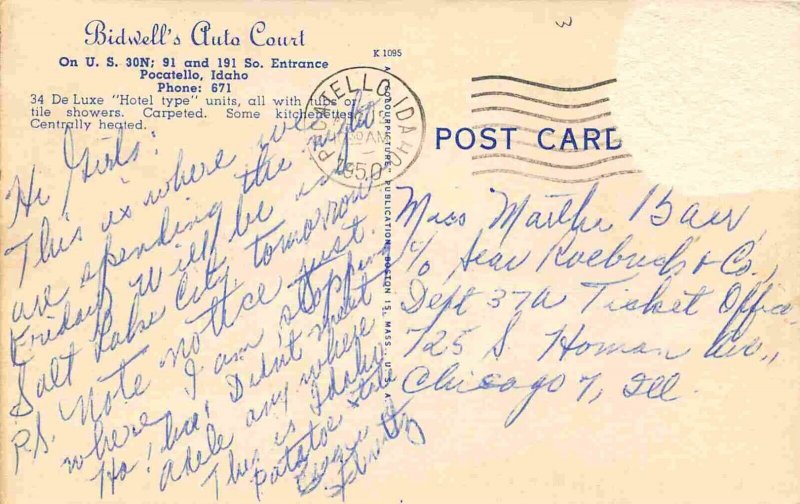 Bidwell's Auto Court
On U. S. 30N; 91 and 191 So. Entrance
Pocatello, Idaho
Phone: 671
34 De Luxe "Hotel type" units, all with tubs or
tile showers. Carpeted. Some kitchenettes.
Centrally heated.
K 1095
3
POCATELLO, IDAHO
AM
1950
POST CARD
A "COLOURPICTURE" PUBLICATION, BOSTON 15, MASS., U. S. A.
Hi Girls:
This is where we
are spending the night
Friday. Will be in
Salt Lake City tomorrow
P.S. Note notice just
where I am stopping
Ho! ha! Didn't meet
Adele any where
This is Idaho
Patatoe state
Miss Martha Baur,
c/o Sear Roebuck & Co.,
Dept 37A Ticket Office
725 S. Homan Ave.,
Chicago 7, Ill.